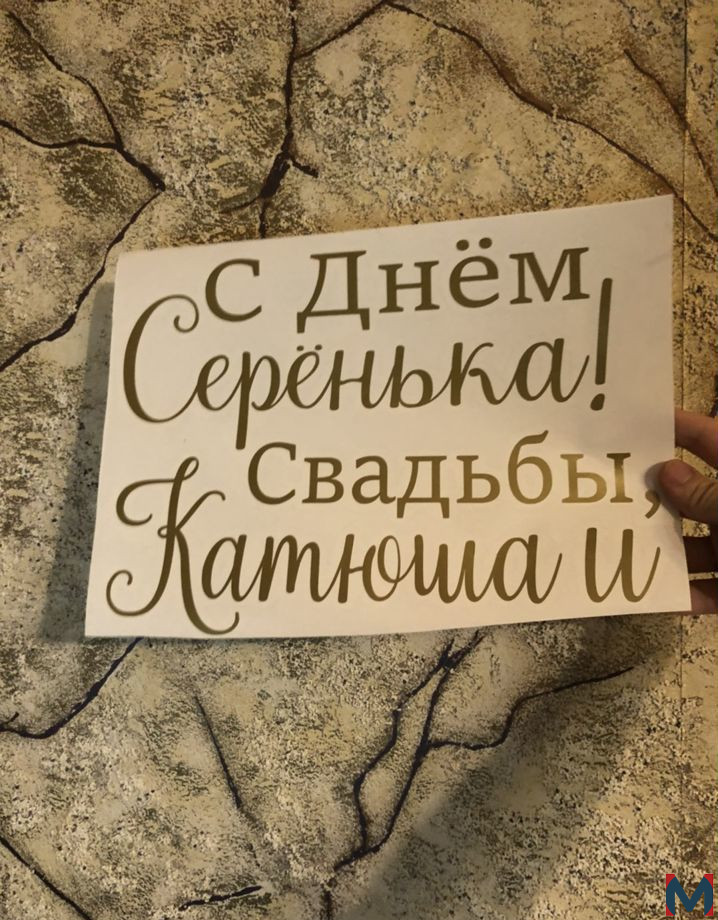 С Днём
Серёнька!
Свадьбы,
Катюша и
M